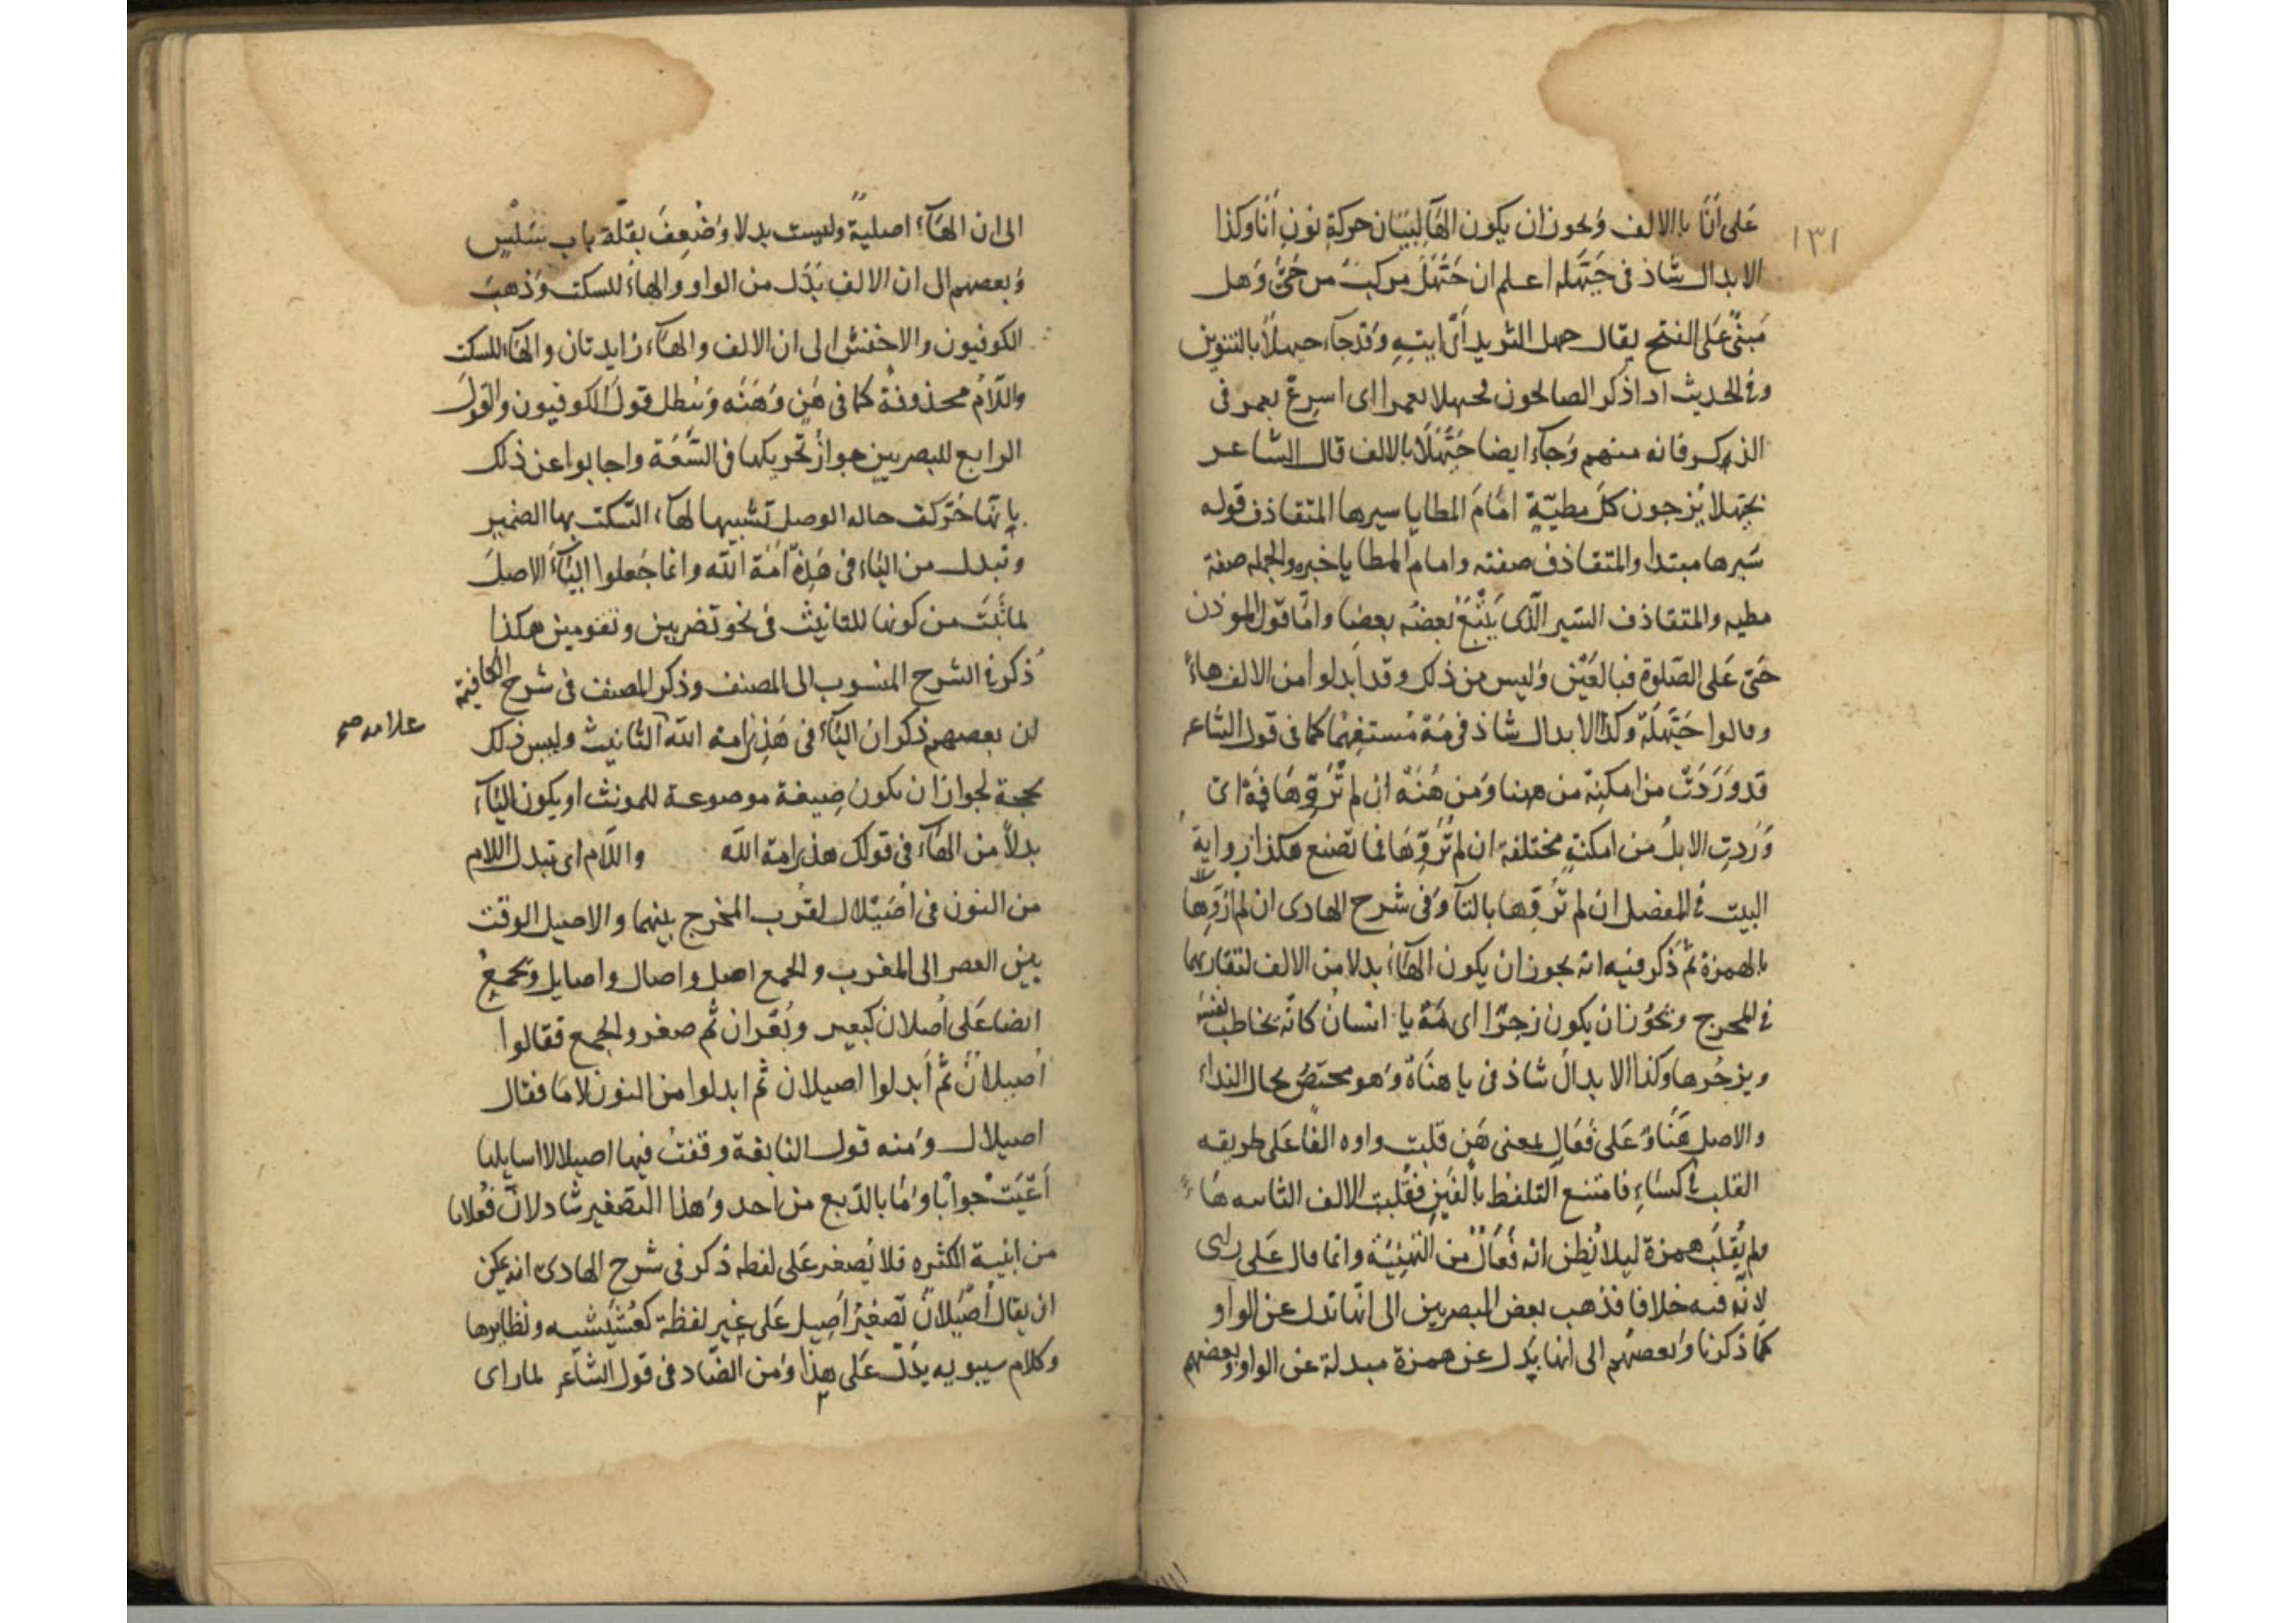 ١٣١
عَلى أنَا بالالف وَيجوز ان يكون الهَآ لِبَيَان حركةِ نونِ أنَا وكذا
الابدال شاذ فى حَيَّهَله اعلم ان حَيَّهَلَ مركبٌ من حَىَّ وَهل
مَبنىٌ عَلى الفتح يقال حيهل الثريد أى ايتِهِ وَقد جآء حيهلاً بالتنوين
وفى الحديث اذا ذكر الصالحون فحيهلا بعمر اى اسرِعْ بعمر فى
الذكر فانه منهم وَجآء ايضا حَيَّهَلَا بالالف قال الشاعر
بحَيّهلا يُزجون كلَّ مطيّةٍ امَامَ المطايا سيرها المتقاذف قوله
سَيرها مبتدا والمتقاذف صفته وامام المطايا خبره والجمله صفة
مطيه والمتقاذف السَير الّذى يَتْبَعُ بعضُه بعضا وامّا قول الموذن
حَىّ عَلى الصَلوة فبالعَيْن وَليس من ذلك وقد اَبدلوا من الالف هاءً
وقالوا حَيَّهَلَهْ وكذا الابدال شاذ فى مَهْ مُستفهِمًا كما فى قول الشاعر
قد وَرَدَتْ من امكِنَهْ من ههنا وَمن هُنَهْ ان لم تُرَوِّهَا فَمَهْ اى
وَرَدتِ الابلُ من امكنةٍ مختلفة ان لم تُرَوِّهَا فما تصنع هكذا رواية
البيت فى المفصل ان لم تُرَوِّها بالتآ وَفى شرح الهادى ان لم اُرَوِّهَا
بالهمزة ثم ذكر فيه انه يجوز ان يكون الهَآءُ بدلا من الالف لتقاربهما
فى المخرج ويَجُوز ان يكون زجرًا اى مَهْ يا انسانُ كانّه يخاطب نفسَه
ويزجُرها وكذا الابدالُ شاذ فى يا هنَاهْ وَهو مختصٌ بحال النداء
والاصل هَنَاوٌ عَلى فَعَال بمعنى هَنٍ قلبت واوه الفًا عَلى طريقه
القلب فى كسَاءٍ فامتنع التلفظ بالفَيْنِ فقُلبت الالف الثانيه هَا
ولم يُقلَب همزة ليلا يُظن انه فَعَالٌ من التهنِئَة وانما قال عَلى راى
لانّه فيه خلافا فذهب بعض البصريين الى انّها تدل عن الواو
كما ذكرنا وَبعضهُم الى انها بَدل عن همزة مبدلة عن الواو وبعضهم
الى ان الهَآءَ اصليةً وليست بدلا وَضُعِفَ بقلّة باب سَلِسٍ
وَبعضهم الى ان الالف بَدَل من الواو والهاءُ للسكت وَذهبَ
الكوفيون والاخفش الى ان الالف والهَآءَ زايدتان والهَآء للسكت
واللّامُ محذوفةٌ كما فى هَنٍ وَهَنَه وَيبطل قولَ الكوفيون والقولَ
الرابع للبصريين جوازُ تحريكها فى السَّعَة واجابوا عن ذلك
بانّها حُرّكت حاله الوصل تشبيها لهَآء السّكت بهَا الضمير
وتبدل من اليَاء فى هَذِهْ اَمَةُ الله وانما جَعلوا اليَآءَ الاصلَ
لما ثَبَتَ من كونها للتانيث فى نحو تضربين وتقومين هكذا
ذكر فى الشرح المنسوب الى المصنف وذكر المصنف فى شرح الكافية
علامه صح
ان بعضهم ذكر ان اليَآءَ فى هَذِى امة الله التانيث وليس ذلك
بحجة لجواز ان يكون صِيغة موضوعة للمونث او يكون اليَآء
بدلاً من الهَآء فى قولك هذه امة اللّه واللّام اى تبدل اللام
من النون فى اُصَيْلَال لقُرب المخرج بينهما والاصيل الوقت
بين العصر الى المغرب والجمع اصل واصال واصايل ويجمعُ
ايضا عَلى اُصلان كبَعير وبُعْران ثم صغروا الجمع فقالوا
اُصيلانٌ ثم اَبدلوا اصيلان ثم ابدلوا من النون لامًا فقال
اصيلال وَمنه قول النابغة وقفتُ فيها اصيلالا اسايلها
اَعْيَتْ جوابًا وَما بالربع من احد وَهذا التصغير شاذ لانّ فُعلانا
من ابنية الكثره فلا يُصغر عَلى لفظه ذكر فى شرح الهادى انه يمكن
ان يقال اُصَيْلانٌ تصغيرُ اَصيل عَلى غير لفظه كعُشَيْشيه ونظايرها
وكلام سيبويه يدُلّ عَلى هذا وَمن الضّاد فى قول الشاعر لما راى